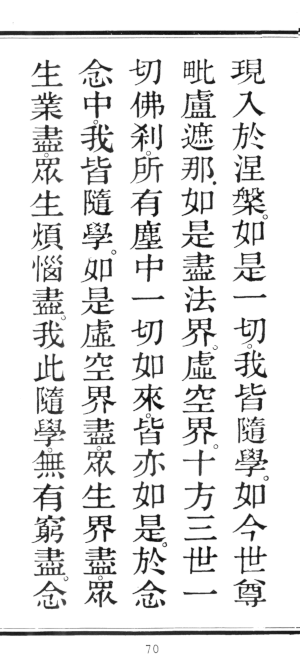 現入於涅槃。如是一切。我皆隨學。如今世尊
毗盧遮那.如是盡法界。虛空界。十方三世一
切佛刹。所有塵中一切如來。皆亦如是。於念
念中。我皆隨學。如是虛空界盡。眾生界盡。眾
生業盡。眾生煩惱盡。我此隨學。無有窮盡。念
70